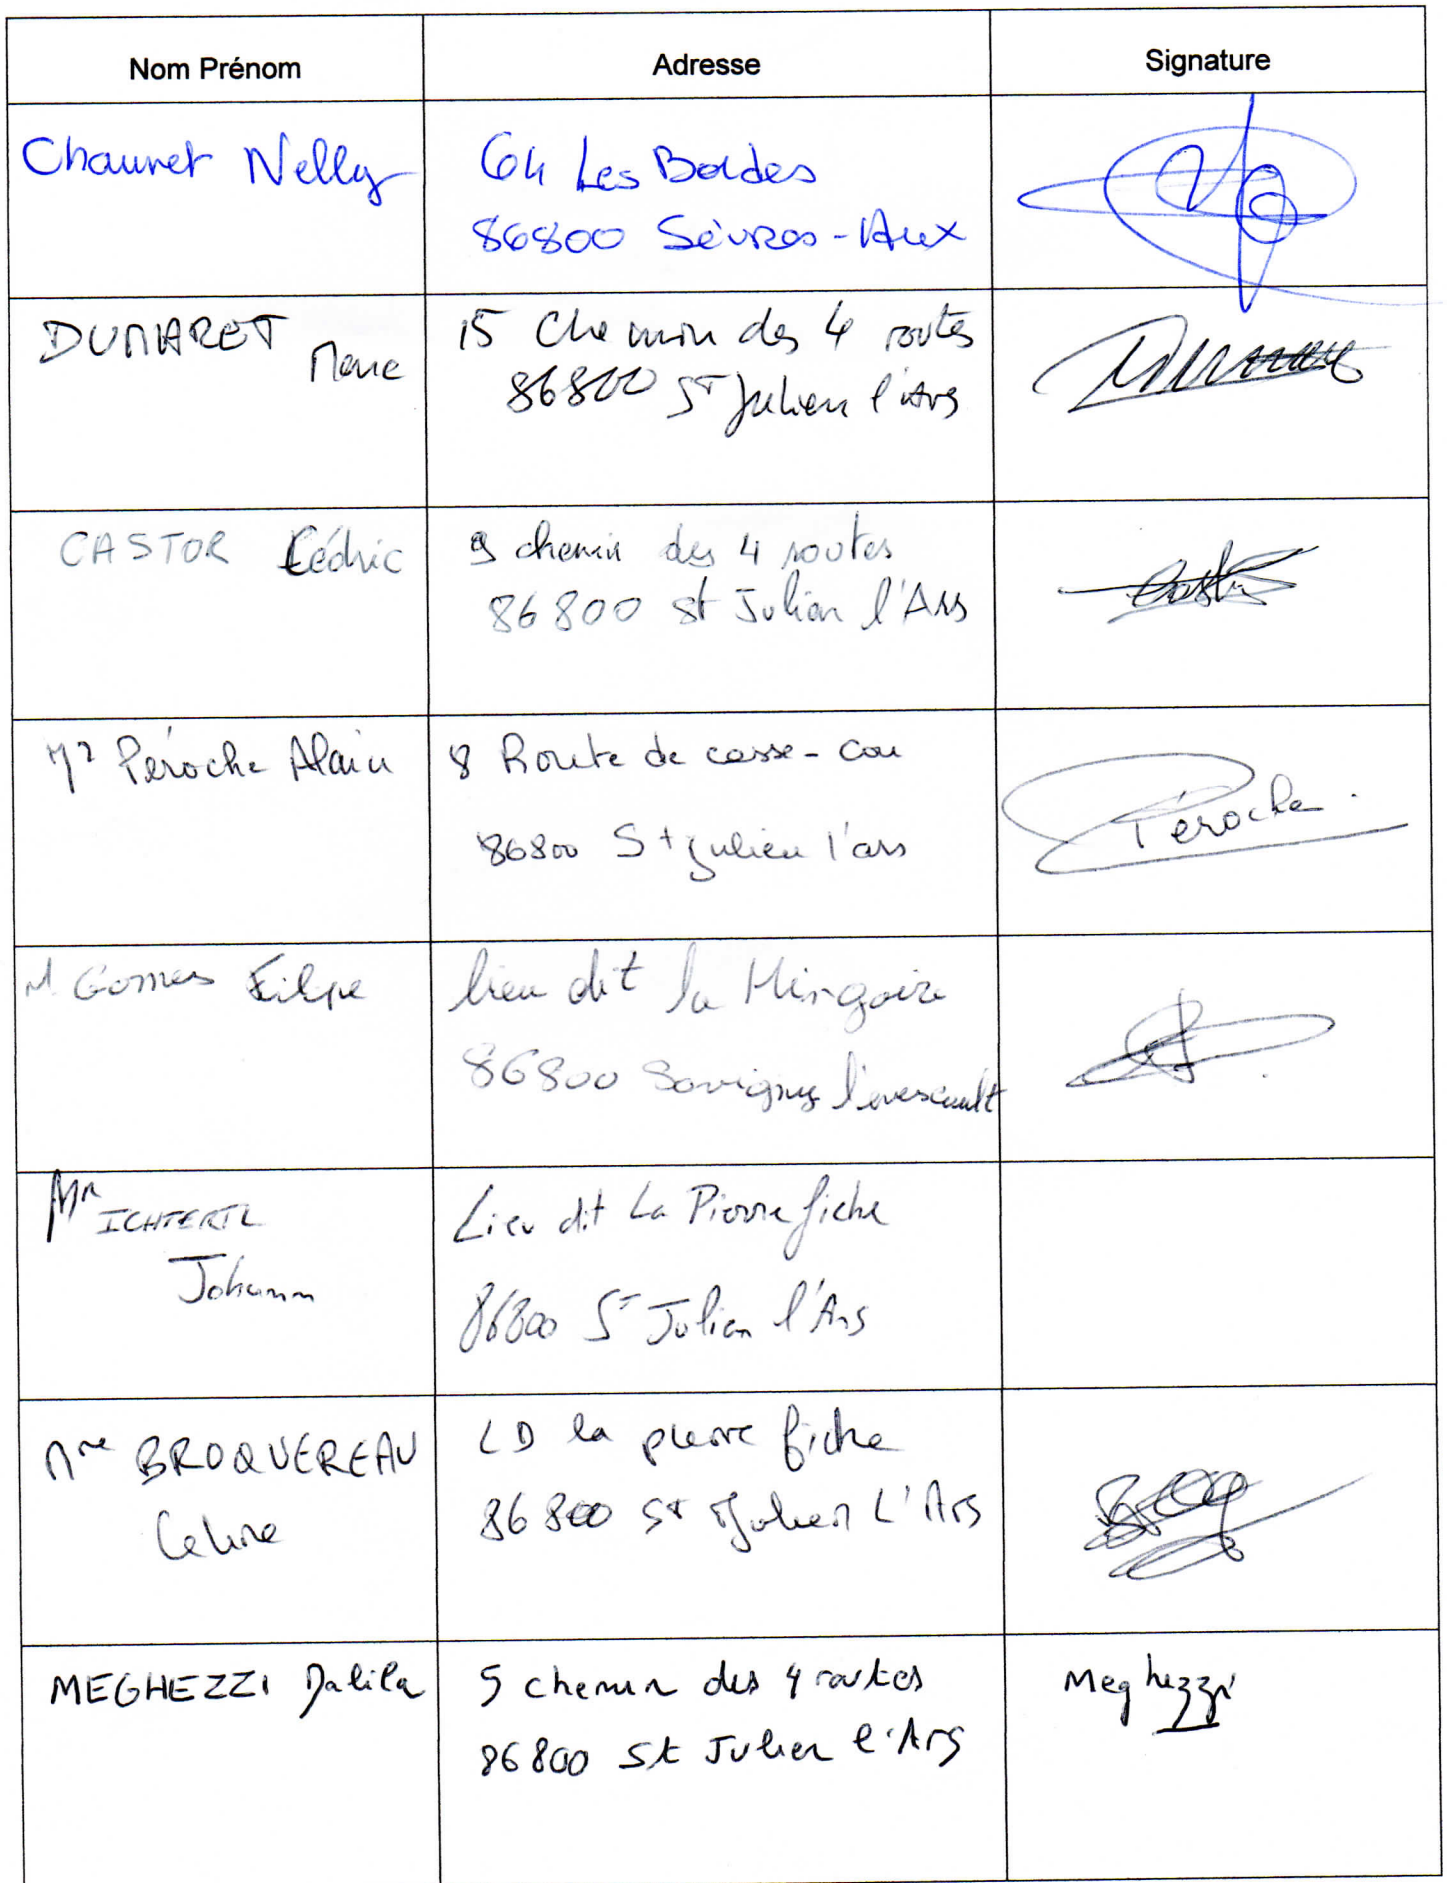 Nom Prénom
Adresse
Signature
Chauvet Nelly
64 Les Bordes
86800 Sèvres-Aux
DUMARET
Marie
15 Chemin des 4 routes
86800 St Julien l'Ars
CASTOR Cédric
9 chemin des 4 routes
86800 St Julien l'Ars
Castor
Mr Péroche Alain
8 Route de casse-cou
86800 St Julien l'ars
Péroche
M. Gomes Filipe
lieu dit la Mingoire
86800 Savigny l'evescault
Mr ICHTERTZ
Johann
Lieu dit La Pierre fiche
86800 St Julien l'Ars
Mme BROQUEREAU
Celine
LD la pierre fiche
86800 St Julien L'Ars
MEGHEZZI Dalila
5 chemin des 4 routes
86800 St Julien l'Ars
Meghezzi